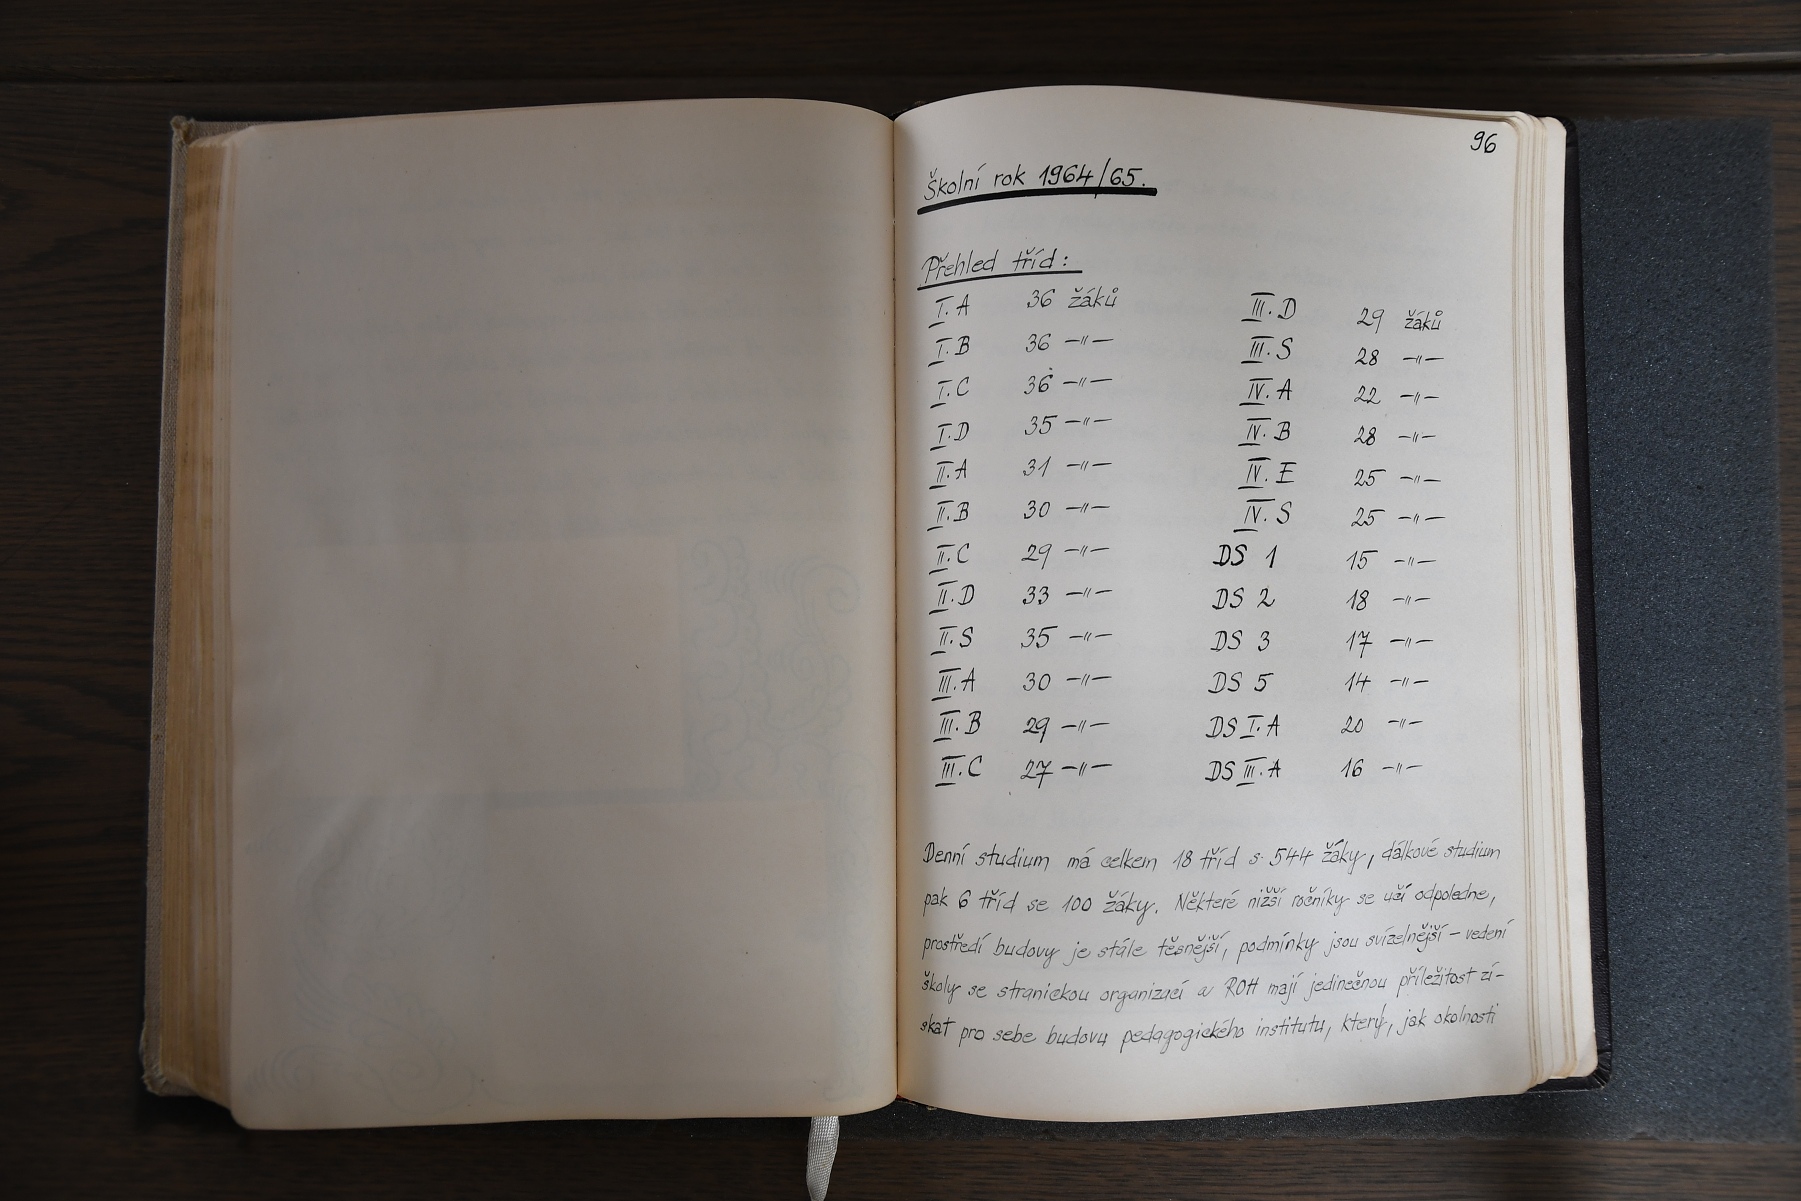 96
Školní rok 1964/65.
Přehled tříd:
I.A 36 žáků
I.B 36 —〃—
I.C 36 —〃—
I.D 35 —〃—
II.A 31 —〃—
II.B 30 —〃—
II.C 29 —〃—
II.D 33 —〃—
II.S 35 —〃—
III.A 30 —〃—
III.B 29 —〃—
III.C 27 —〃—
III.D 29 žáků
III.S 28 —〃—
IV.A 22 —〃—
IV.B 28 —〃—
IV.E 25 —〃—
IV.S 25 —〃—
DS 1 15 —〃—
DS 2 18 —〃—
DS 3 17 —〃—
DS 5 14 —〃—
DS I.A 20 —〃—
DS III.A 16 —〃—
Denní studium má celkem 18 tříd s 544 žáky, dálkové studium
pak 6 tříd se 100 žáky. Některé nižší ročníky se učí odpoledne,
prostředí budovy je stále těsnější, podmínky jsou svízelnější – vedení
školy se stranickou organizací a ROH mají jedinečnou příležitost zí-
skat pro sebe budovu pedagogického institutu, který, jak okolnosti